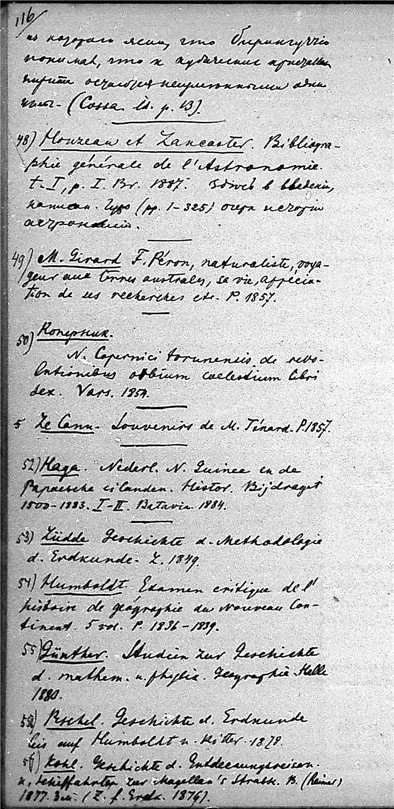 116/
из которого ясно, что Бирингуччіо
понимал, что и кубические кристаллы
пирита остаются неизменными
(Cossa. ld. p. 43).
48) Houzeau et Lancaster. Bibliogra-
phie générale de l'Astronomie.
t. I, p. I. Br. 1887. в введении,
(pp. 1-325) очерк истории
астрономии.
49) M. Girard F. Péron, naturaliste, voya-
geur aux terres australes, sa vie, apprécia-
tion de ses recherches etc. P. 1857.
50) Коперник.
N. Copernici torunensis de revo-
lutionibus orbium coelestium libri
sex. Vars. 1854.
5 Le Canu. Souvenirs de M. Ténard. P. 1857.
52) Haga. Nederl. N. Guinea en de
Papoesche eilanden. Histor. Bijdrage
1500-1883. I-II. Batavia. 1884.
53) Lüdde Geschichte d. Methodologie
d. Erdkunde. L. 1849.
54) Humboldt. Examen critique de l'
histoire de géographie du Nouveau Con-
tinent. 5 vol. P. 1836-1839.
55) Günther. Studien zur Geschichte
d. mathem. u. physik. Geographie. Halle
1880.
56) Peschel. Geschichte d. Erdkunde
bis auf Humboldt u. Ritter. 1878.
57) Kohl. Geschichte d. Entdeckungsreisen
u. Schiffahrten zur Magellan's Strasse. B. (Reimer)
1877. (Z. f. Erdk. 1876).